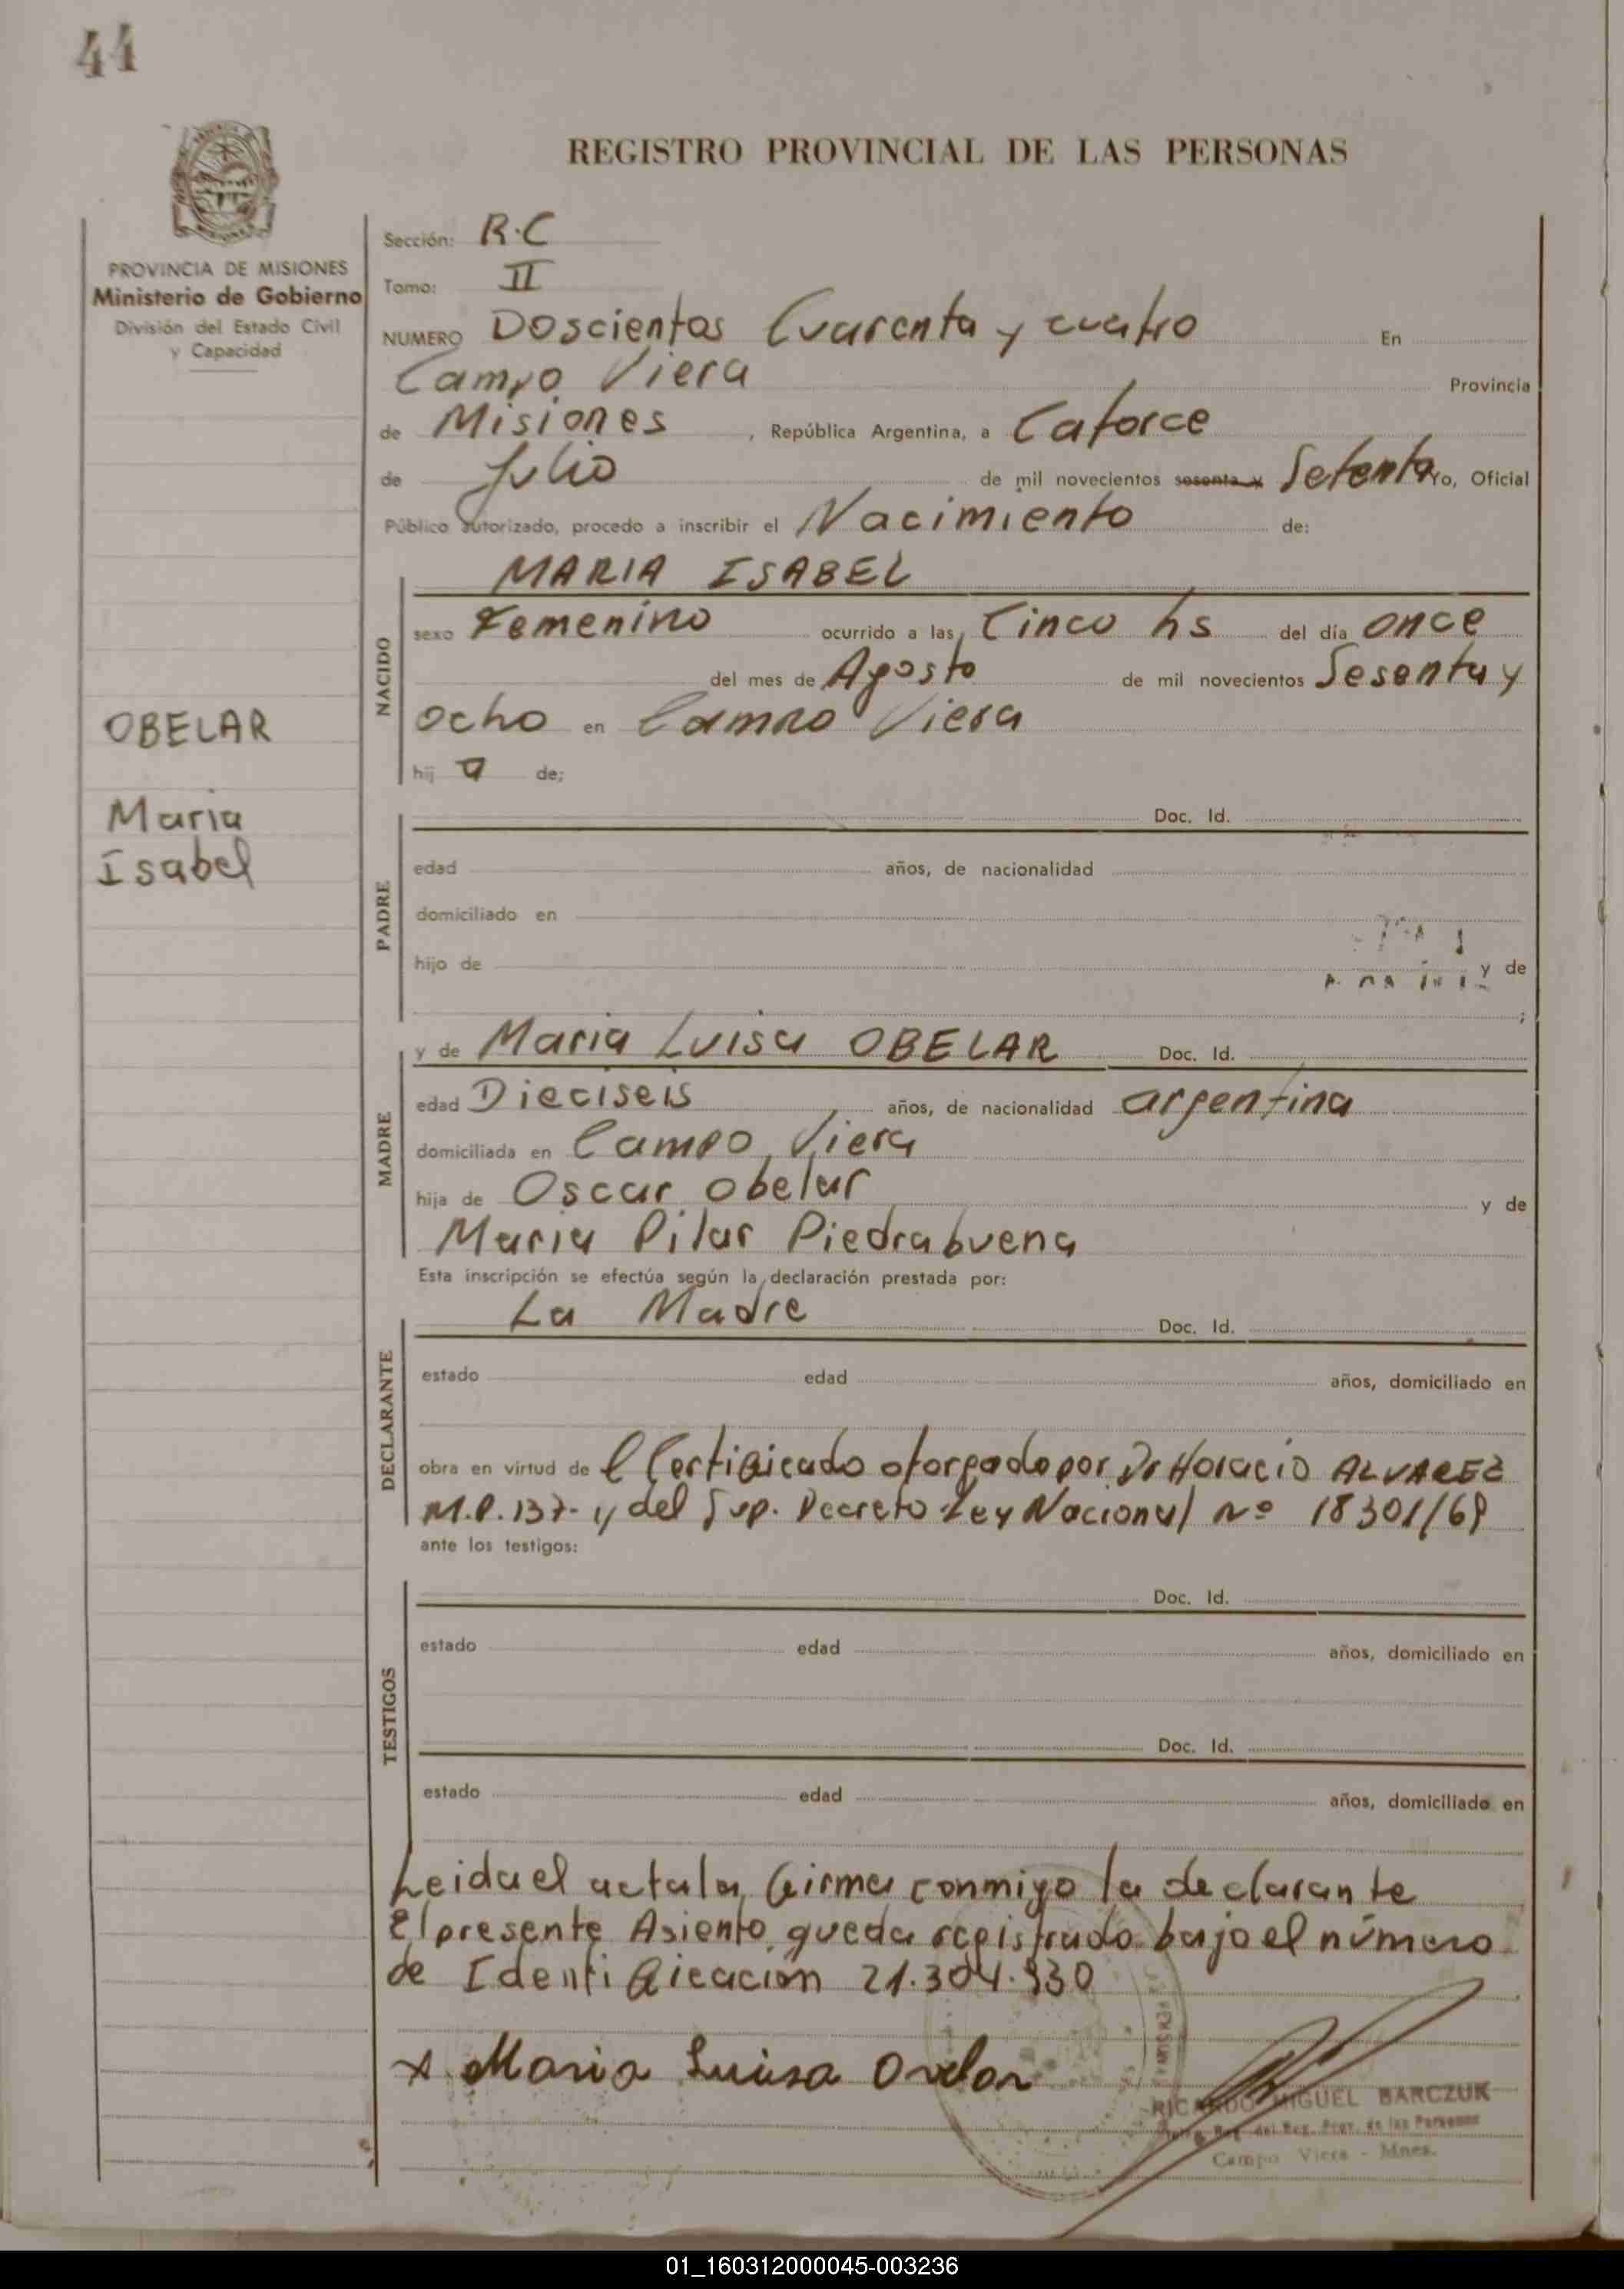 44
REGISTRO PROVINCIAL DE LAS PERSONAS
PROVINCIA DE MISIONES
Ministerio de Gobierno
División del Estado Civil
y Capacidad
OBELAR
Maria
Isabel
Sección: R.C
Tomo: II
NUMERO Doscientos Cuarenta y cuatro En
Campo Viera Provincia
de Misiones, República Argentina, a Catorce
de Julio de mil novecientos sesenta y Setenta Yo, Oficial
Público autorizado, procedo a inscribir el Nacimiento de:
NACIDO
MARIA ISABEL
sexo Femenino ocurrido a las Cinco hs del día once
del mes de Agosto de mil novecientos Sesenta y
ocho en Campo Viera
hij a de;
PADRE
Doc. Id.
edad años, de nacionalidad
domiciliado en
hijo de y de
;
MADRE
y de Maria Luisa OBELAR Doc. Id.
edad Dieciseis años, de nacionalidad argentina
domiciliada en Campo Viera
hija de Oscar Obelar y de
Maria Pilar Piedrabuena
Esta inscripción se efectúa según la declaración prestada por:
DECLARANTE
La Madre Doc. Id.
estado edad años, domiciliado en
obra en virtud de l Certificado otorgado por Dr Horacio ALVAREZ
M.P. 137- y del Sup. Decreto Ley Nacional Nº 18301/69
ante los testigos:
TESTIGOS
Doc. Id.
estado edad años, domiciliado en
Doc. Id.
estado edad años, domiciliado en
Leida el acta la firma conmigo la declarante
El presente Asiento queda registrado bajo el número
de Identificacion 21.304.930
x Maria Luisa
RICARDO MIGUEL BARCZUK
del Reg. Prov. de las Personas
Campo Viera - Mnes.
01_160312000045-003236